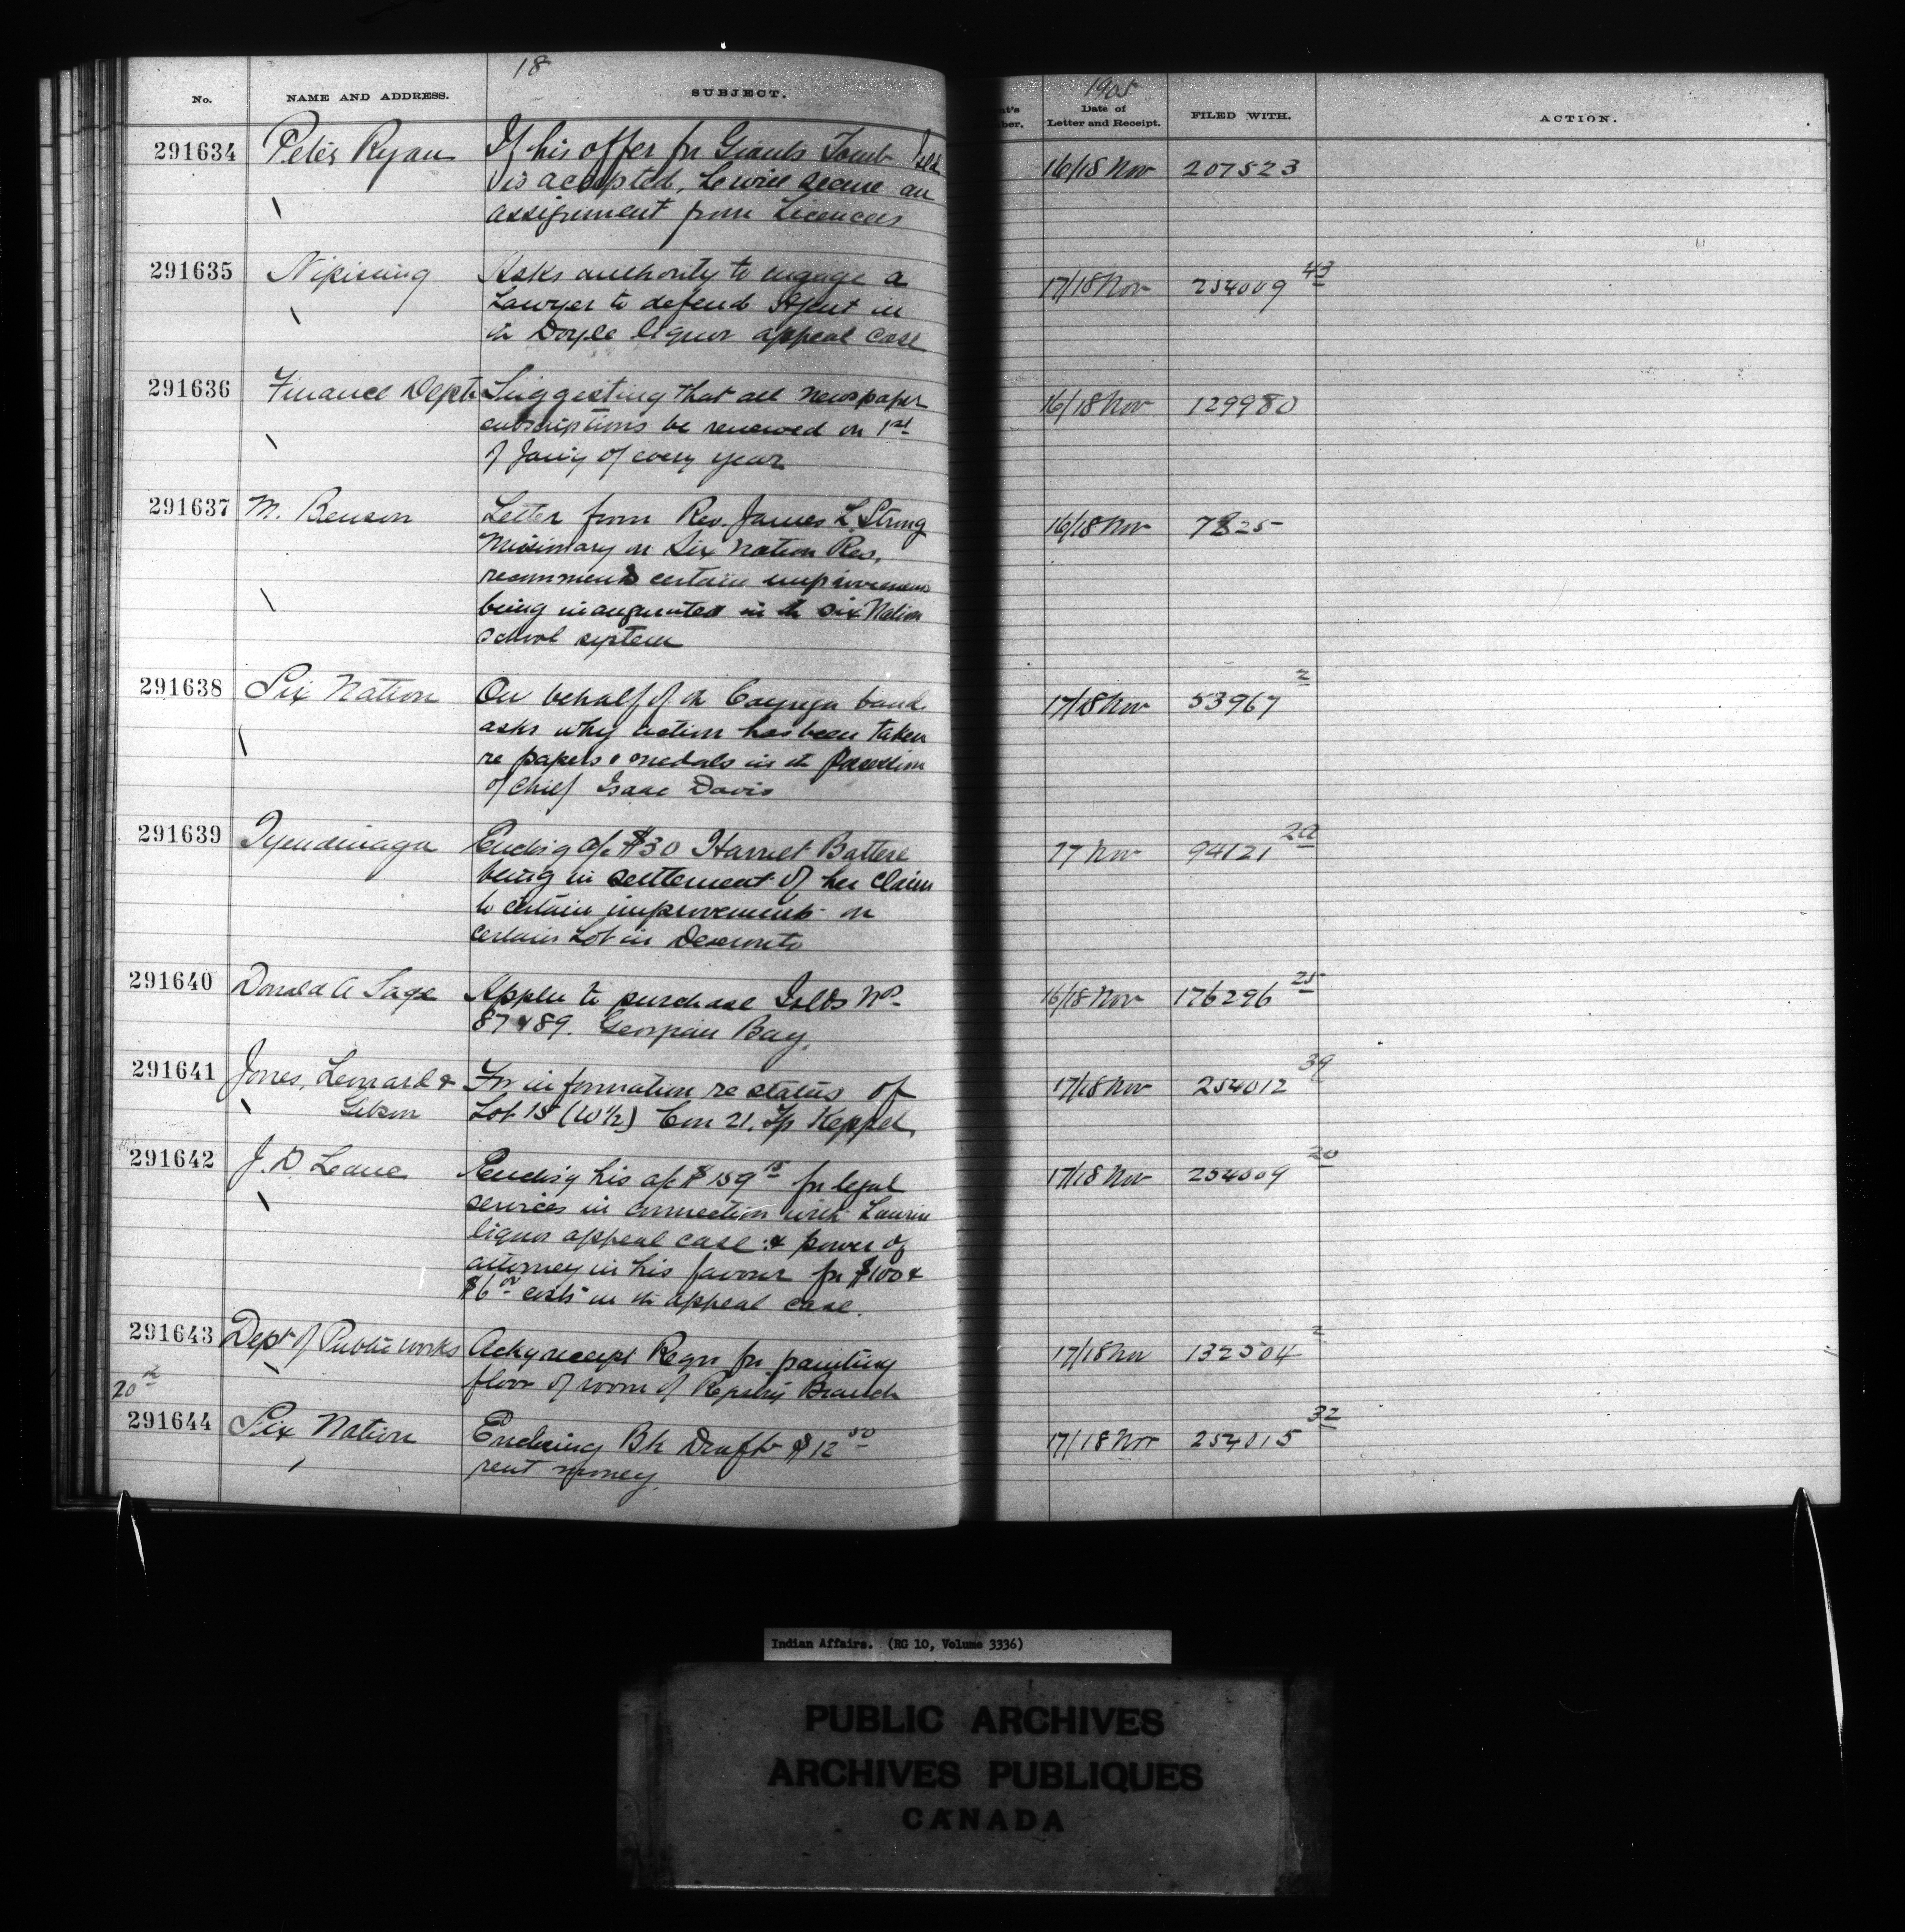 18
No. NAME AND ADDRESS. SUBJECT.
291634 Peter Ryan If his offer for Giants Tomb Isld
is accepted, he will secure an
assignment from Licencees
291635 Nipissing Asks authority to engage a
Lawyer to defend Agent in
th Doyle liquor appeal case
291636 Finance Dept Suggesting that all newspaper
subscriptions be renewed on 1st
of Jan'y of every year
291637 M. Benson Letter from Rev. James L. Strong
Missionary on Six Nation Res,
recommends certain improvements
being inaugurated in th Six Nation
school system
291638 Six Nation On behalf of th Cayuga band
asks why action has been taken
re papers & medals in th possession
of Chief Isaac Davis
291639 Tyendinaga Enclosg a/c $30 Harriet Battese
being in settlement of her claim
to certain improvements on
certain Lot in Deseronto
291640 Donald A Sage Appln to purchase Islds Nos
87 & 89. Georgian Bay.
291641 Jones, Leonard & For information re status of
Gibson Lot 15 (W½) Con 21, Tp Keppel
291642 J. D Leane Enclosg his a/c $159 15 for legal
services in connection with
liquor appeal case & power of
attorney in his favour for $100 &
$6 00 costs in th appeal case.
291643 Dept of Public Works Ackg receipt Reqn for painting
floor of room of Registry Branch
20th
291644 Six Nation Enclosing Bk Draft $12 50
rent money.
1905
nt's
ber. Date of
Letter and Receipt. FILED WITH. ACTION.
16/18 Nov 207523
17/18 Nov 254009 43
16/18 Nov 129980
16/18 Nov 7825
17/18 Nov 53967 2
17 Nov 94121 20
16/18 Nov 176296 25
17/18 Nov 254012 39
17/18 Nov 254009 20
17/18 Nov 132504 2
17/18 Nov 254015 32
Indian Affairs. (RG 10, Volume 3336)
PUBLIC ARCHIVES
ARCHIVES PUBLIQUES
CANADA